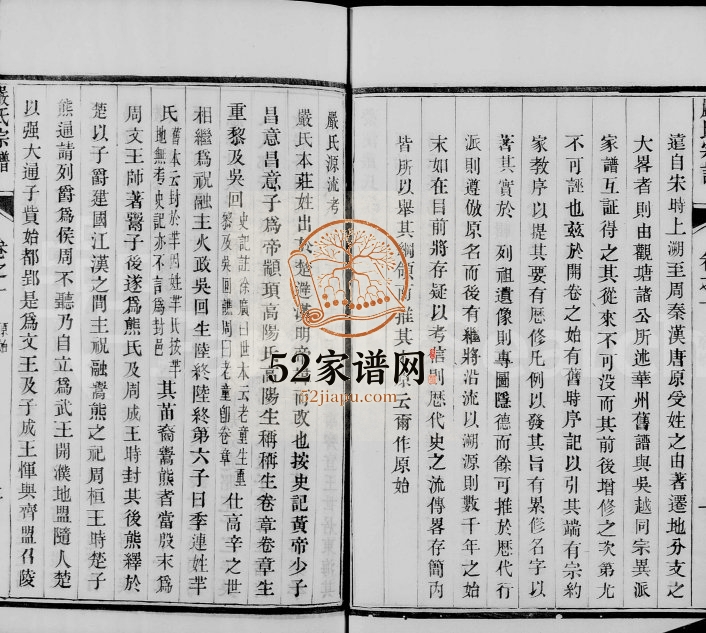 遠自宋時上溯至周秦漢唐原受姓之由著遷地分支之
大畧者則由觀塘諸公所述華州舊譜與吳越同宗異派
家譜互証得之其從來不可没而其前後增修之次第尤
不可誣也兹於開卷之始有舊時序記以引其端有宗約
家教序以提其要有歷修凡例以發其旨有累修名字以
著其實於 列祖遺像則專圖隱德而餘可推於歷代行
派則遵倣原名而後有繼將沿流以溯源則數千年之始
末如在目前將存疑以考信則歷代史之流傳畧存簡内
皆所以舉其綱領而推其 云爾作原始
嚴氏源流考
嚴氏本莊姓出 楚避漢明帝 而改也按史記黃帝少子
昌意昌意子為帝顓頊高陽氏高陽生稱稱生卷章卷章生
重黎及吳回 史記註徐廣曰世本云老童生重黎及吳回譙周曰老童即卷章 仕高辛之世
相繼為祝融主火政吳回生陸終陸終第六子曰季連姓芈
氏 舊本云封於芈因姓芈氏按芈地無考史記亦不言為封邑 其苗裔鬻熊者當殷末為
周文王師著鬻子後遂為熊氏及周成王時封其後熊繹於
楚以子爵建國江漢之間主祝融鬻熊之祀周桓王時楚子
熊通請列爵為侯周不聽乃自立為武王開濮地盟隨人楚
以强大通子貲始都郢是為文王及子成王惲與齊盟召陵
嚴氏宗譜
卷之一
原始
52家谱网
52jiapu.com